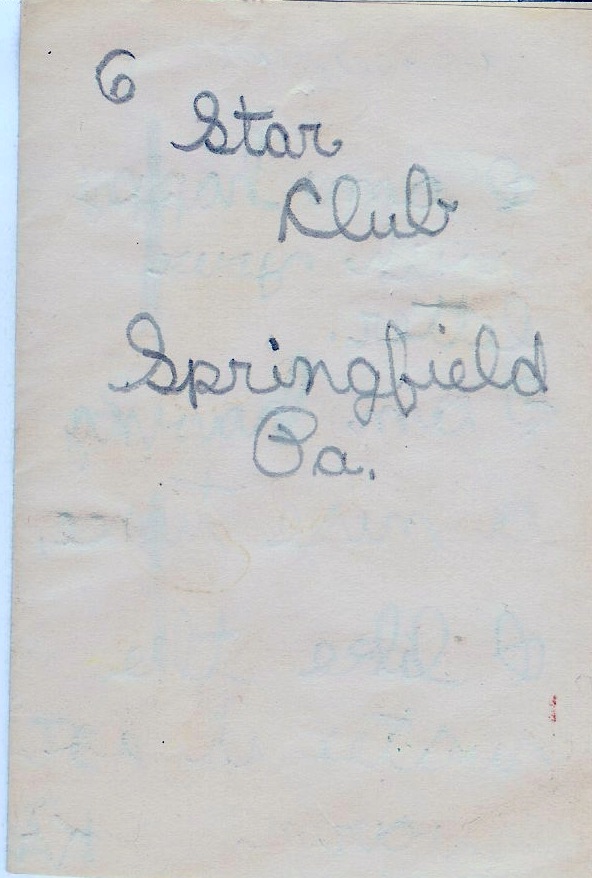 6
Star
Club
Springfield
Pa.